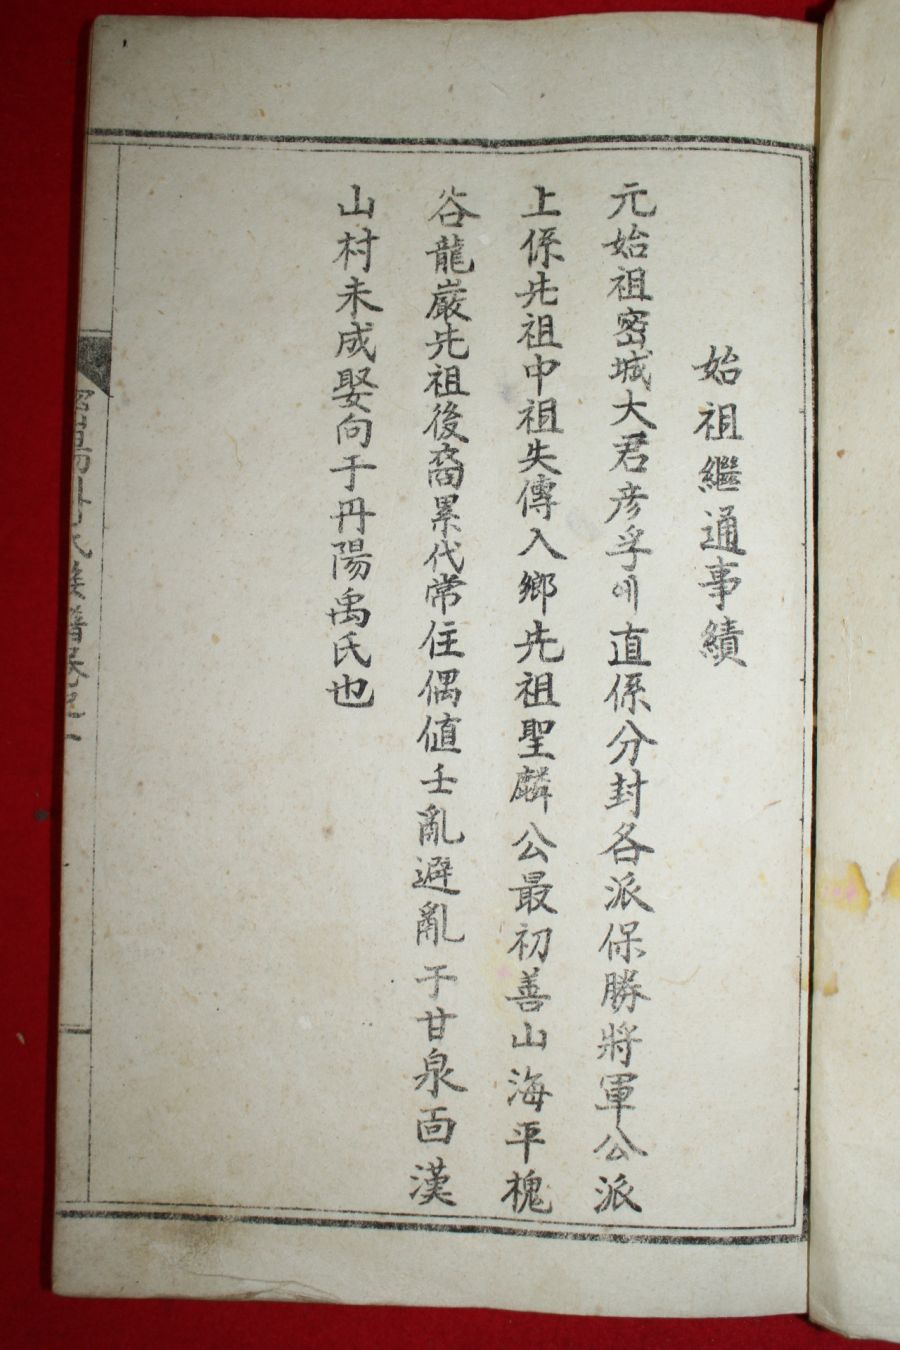 始祖繼通事績
元始祖密城大君彦孚에直係分封各派保勝將軍公派
上係先祖中祖失傳入鄉先祖聖麟公最初善山海平槐
谷龍巖先祖後裔累代常住偶値壬亂避亂于甘泉面漢
山村未成娶向于丹陽禹氏也
密陽朴氏族譜卷之一